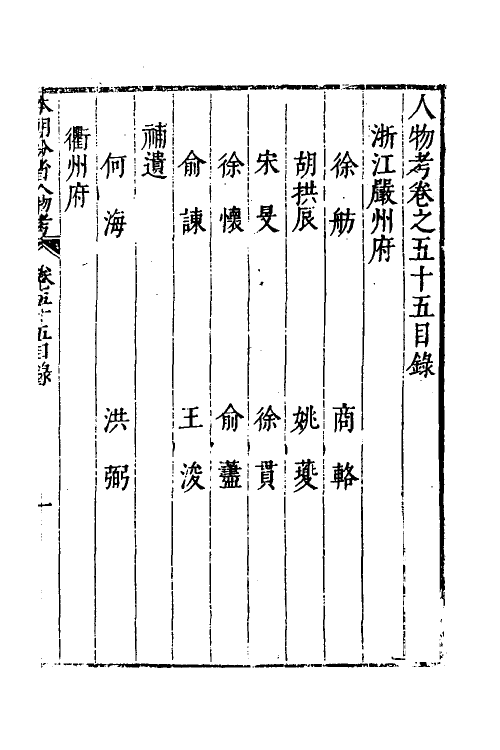 人物考卷之五十五目錄
浙江嚴州府
徐舫 商輅
胡拱辰 姚夔
宋旻 徐貫
徐懷 俞藎
俞諫 王浚
補遺
何海 洪弼
衢州府
本朝分省人物考 卷五十五目錄 一